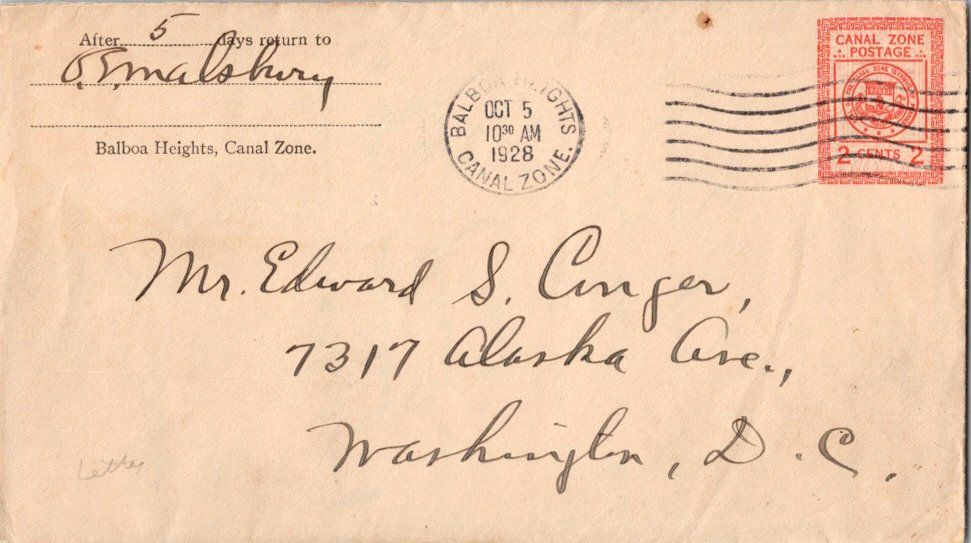 After 5 days return to
O. E. Malsbury
Balboa Heights, Canal Zone.
BALBOA HEIGHTS
OCT 5
10³⁰ AM
1928
CANAL ZONE.
CANAL ZONE
POSTAGE
2 CENTS 2
Mr. Edward S. Conger,
7317 Alaska Ave.,
Washington, D. C.
Letter